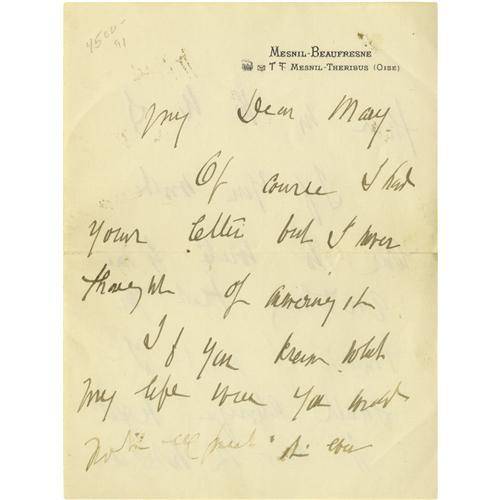 4500-
91
MESNIL-BEAUFRESNE
MESNIL-THERIBUS (OISE)
My Dear Mary
Of course I had
your letter but I never
thought of answering it
If you knew what
my life was you would
not expect it